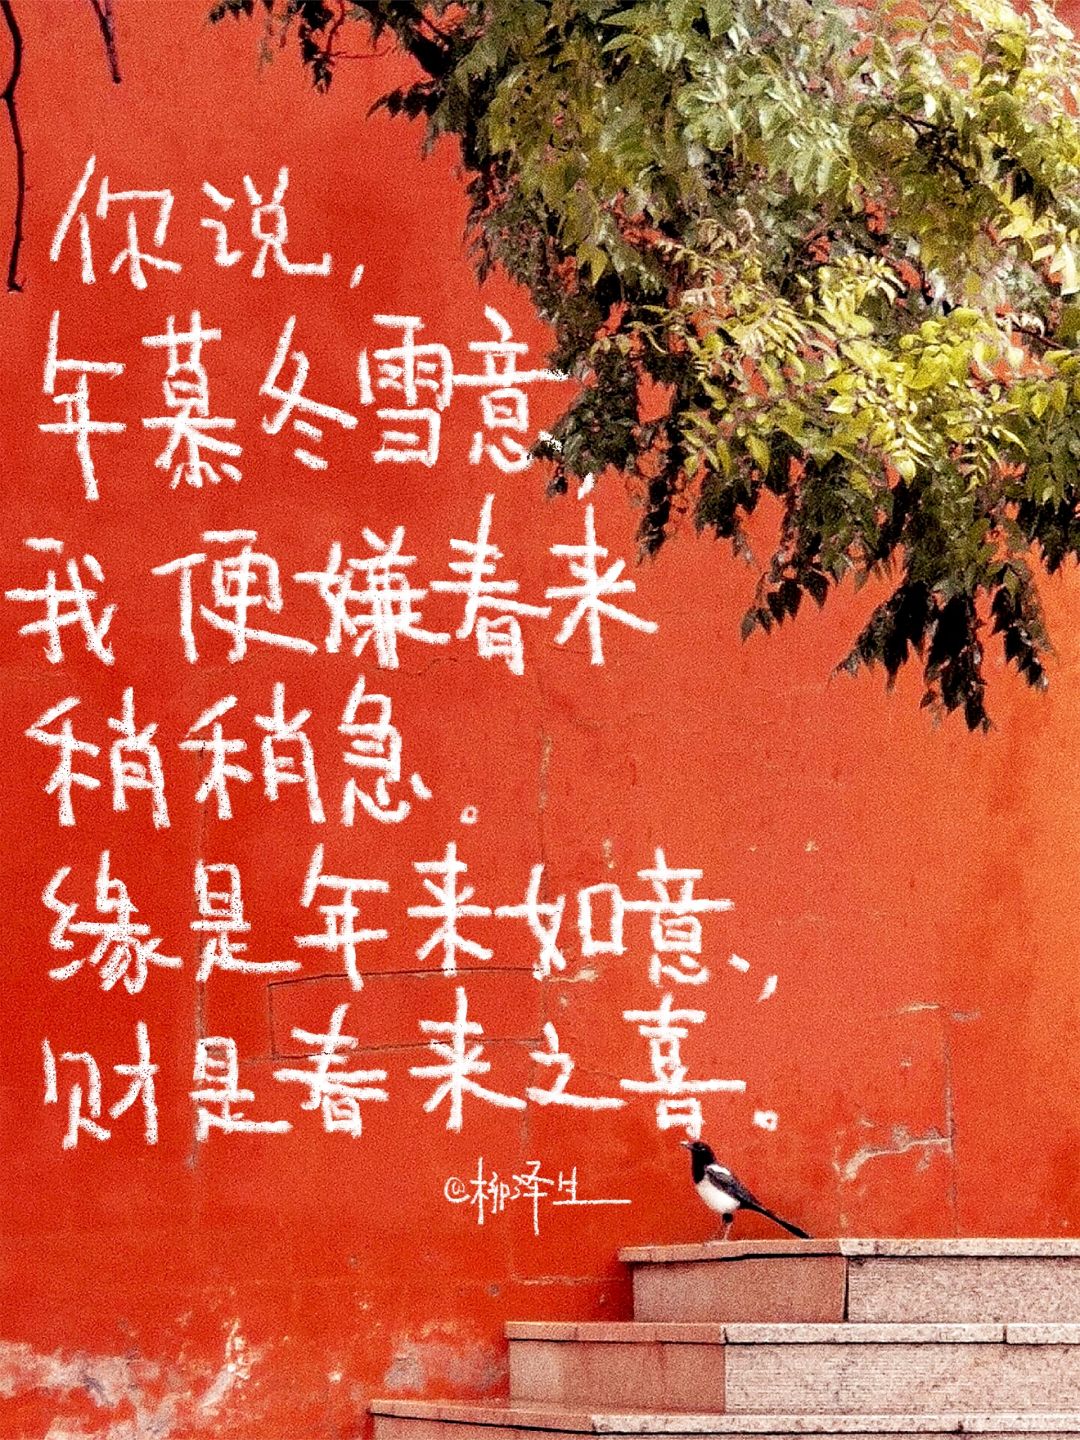 你说，
年慕冬雪意，
我便嫌春来
稍稍急。
缘是年来如意，
财是春来之喜。
@柳泽生